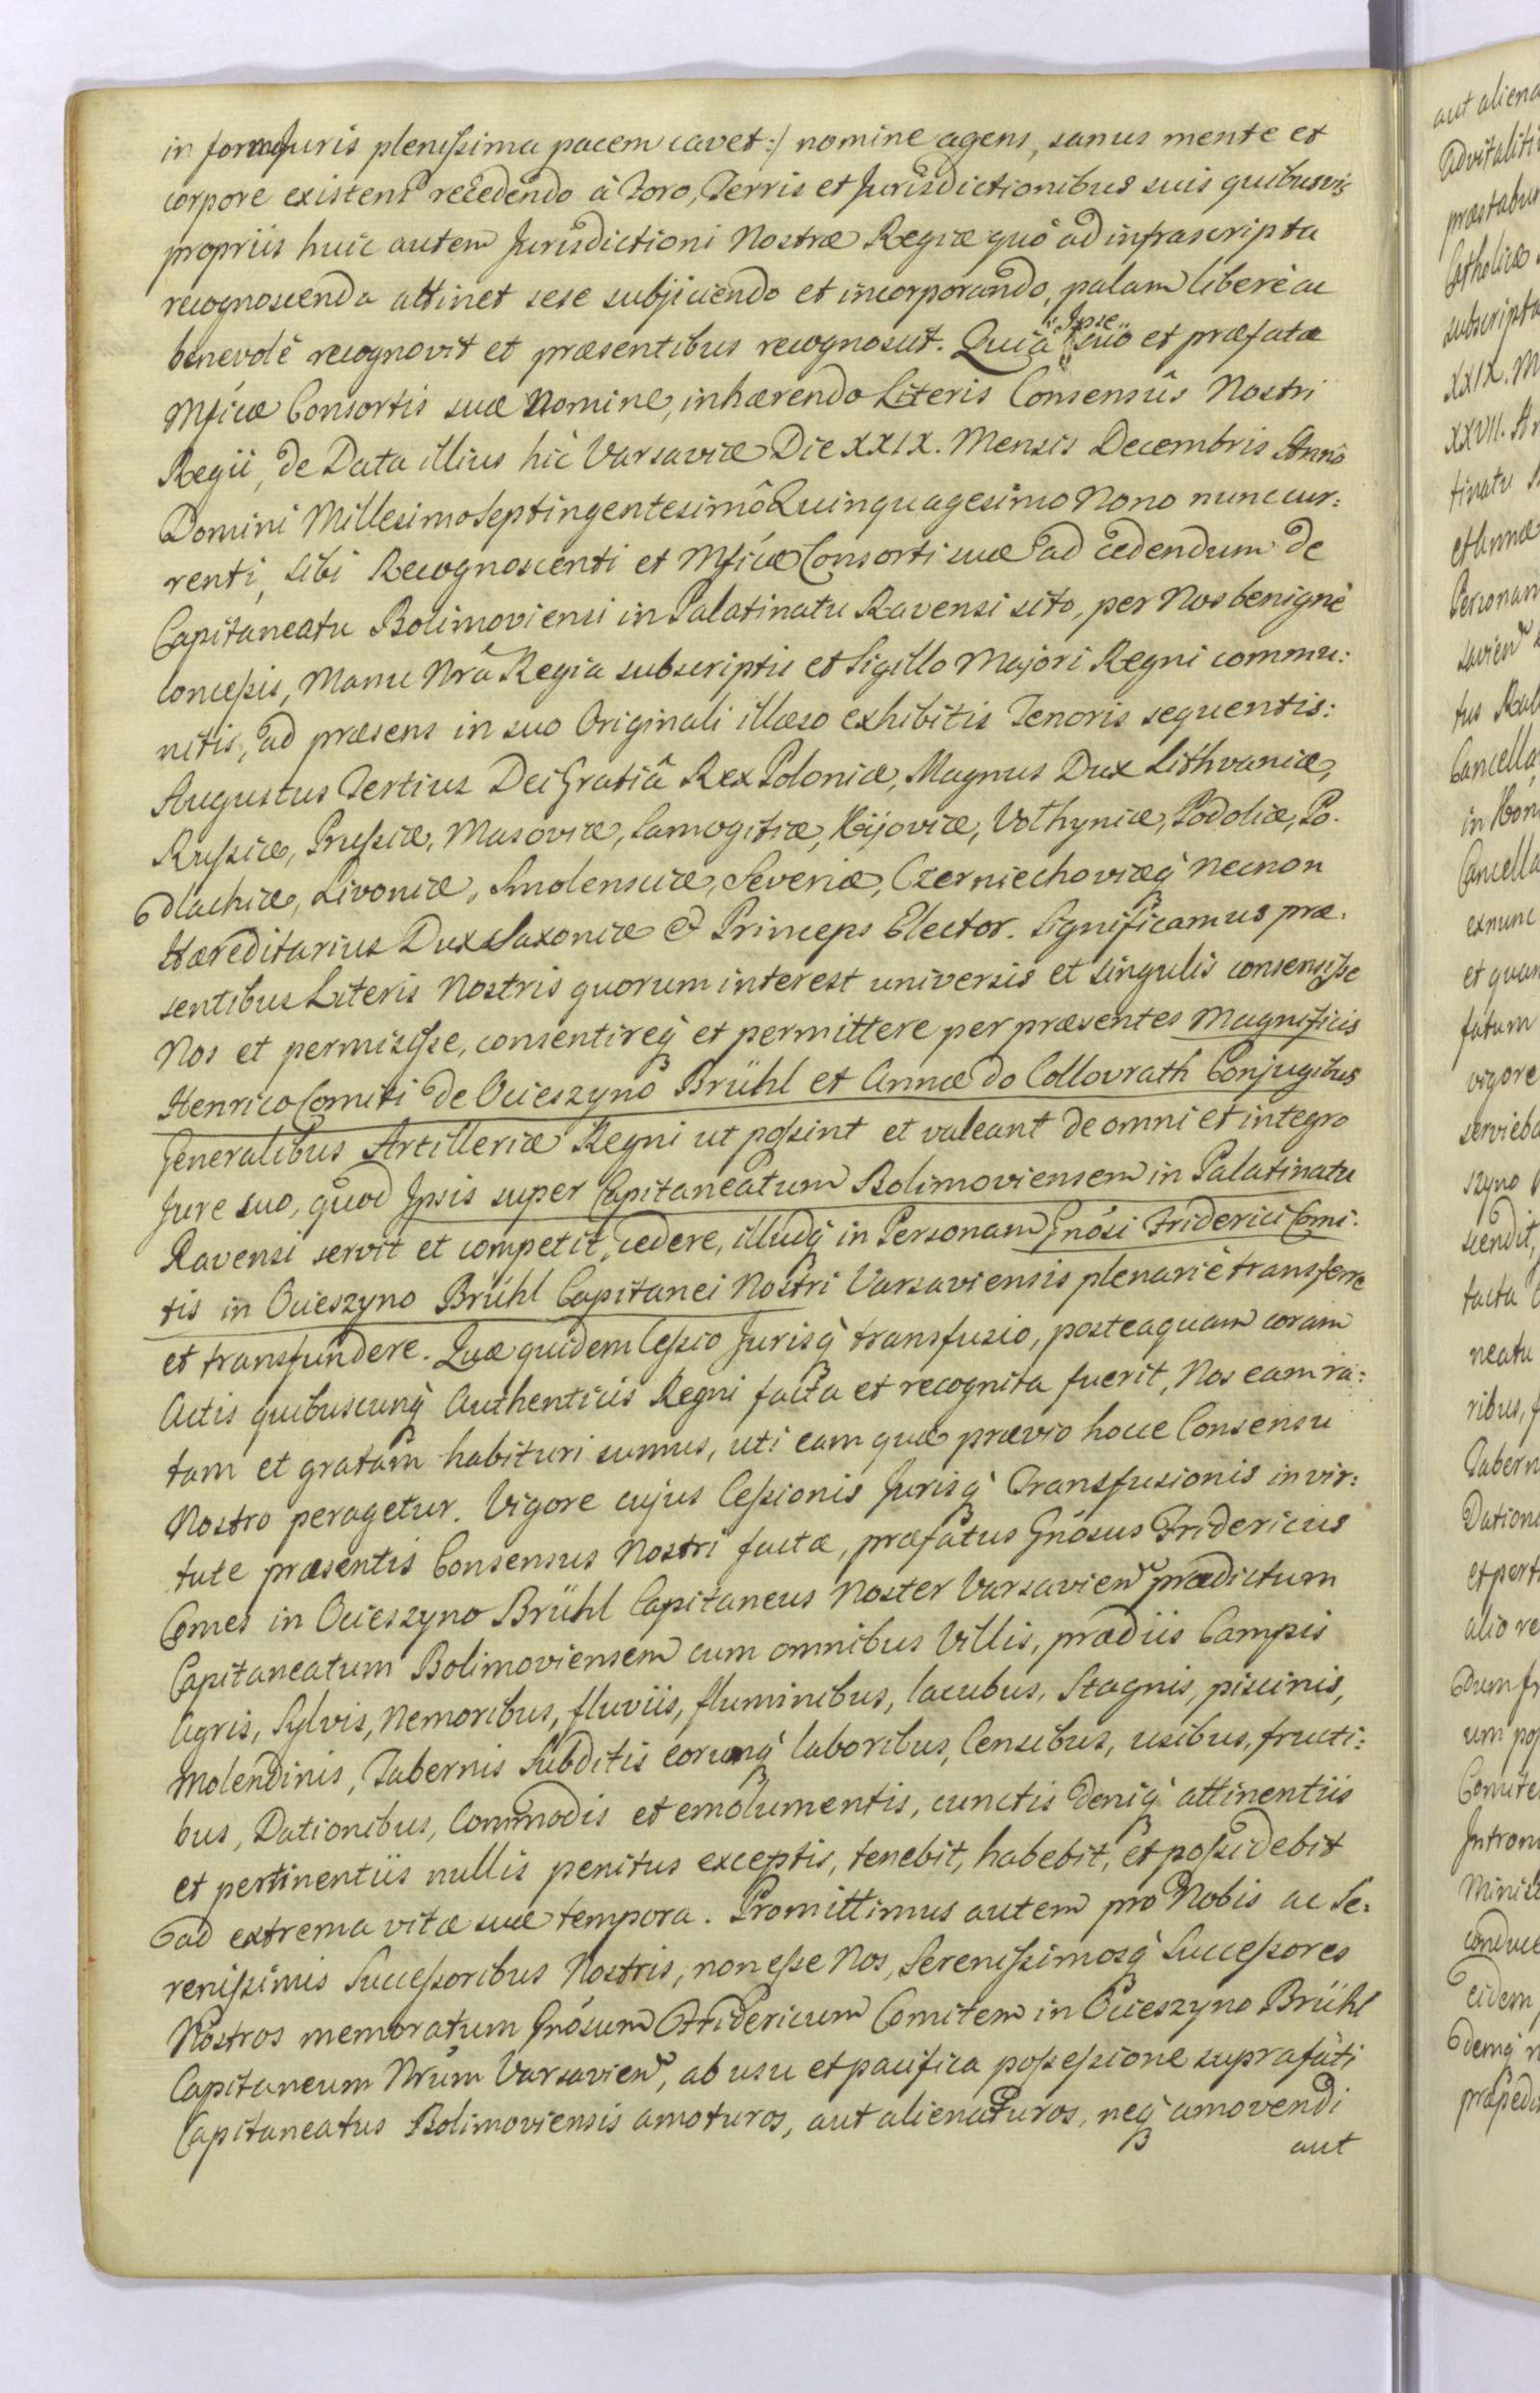 in forma Juris plenissima pacem cavet:/ nomine agens, sanus mente et
corpore existens recedendo à Foro, Terris et Jurisdictionibus suis quibusvis
propriis huic autem Jurisdictioni Nostræ Regiæ quò ad infrascripta
recognoscenda attinet sese subjiciendo et incorporando, palam liberè ac
benevolè recognovit et præsentibus recognoscit. Quià Ipse suo et præfatæ
Mficæ Consortis suæ Nomine, inhærendo Literis Consensûs Nostri
Regii, de Data illius hìc Varsaviæ Die XXIX. Mensis Decembris Annô
Domini Millesimo Septingentesimô Quinquagesimo Nono nunc cur:
renti, sibi Recognoscenti et Mficæ Consorti suæ ad cedendum de
Capitaneatu Bolimoviensi in Palatinatu Ravensi sito, per Nos benignè
concessis, Manu Nrâ Regia subscriptis et Sigillo Majori Regni commu:
nitis, ad præsens in suo Originali illæso exhibitis Tenoris sequentis:
Augustus Tertius Dei Gratiâ Rex Poloniæ, Magnus Dux Lithvaniæ,
Russiæ, Prussiæ, Masoviæ, Samogitiæ, Kijoviæ, Volhyniæ, Podoliæ, Po-
dlachiæ, Livoniæ, Smolensciæ, Severiæ, Czerniechoviæq̀ necnon
Hæreditarius Dux Saxoniæ & Princeps Elector. Significamus præ-
sentibus Literis Nostris quorum interest universis et singulis consensisse
Nos et permisisse, consentireq̀ et permittere per præsentes Magnificis
Henrico Comiti de Ocieszyno Brühl et Annæ do Collovrath Conjugibus
Generalibus Artilleriæ Regni ut possint et valeant de omni et integro
Jure suo, quod Ipsis super Capitaneatum Bolimoviensem in Palatinatu
Ravensi servit et competit, cedere, illudq̀ in Personam Gnósi Friderici Comi-
tis in Ocieszyno Brühl Capitanei Nostri Varsaviensis plenariè transferre
et transfundere. Quæ quidem Cessio Jurisq̀ transfusio, posteaquam coram
Actis quibuscunq̀ Authenticis Regni facta et recognita fuerit, Nos eam ra:
tam et gratam habituri sumus, uti eam quæ prævio hocce Consensu
Nostro peragetur. Vigore cujus Cessionis Jurisq̀ Transfusionis in vir:
tute præsentis Consensus Nostri factæ, præfatus Gnósus Fridericus
Comes in Ocieszyno Brühl Capitaneus Noster Varsavien prædictum
Capitaneatum Bolimoviensem cum omnibus Villis, prædiis Campis
Agris, Sylvis, Nemoribus, fluviis, fluminibus, lacubus, Stagnis, piscinis,
Molendinis, Tabernis Subditis eorumq̀ laboribus, Censibus, usibus, fructi:
bus, Dationibus, Commodis et emolumentis, cunctis deniq̀ attinentiis
et pertinentiis nullis penitus exceptis, tenebit, habebit, et possidebit
ad extrema vitæ suæ tempora. Promittimus autem pro Nobis ac Se:
renissimis Successoribus Nostris, non esse Nos, Serenissimosq̀ Successores
Nostros memoratum Gnósum Fridericum Comitem in Ocieszyno Brühl
Capitaneum Nrum Varsavien, ab usu et pacifica possessione suprafati
Capitaneatus Bolimoviensis amoturos, aut alienaturos, neq̀ amovendi
aut
aut aliena
Advitaliti
præstabun
Catholicæ
subscripta
XXIX. M
XXVII. A
tinatu
et Annæ
Personam
savien
tus
Cancella
in
Cancella
exnunc
et quam
fatum
vigore
servieba
szyno
scendit,
facta
neatu
ribus,
Tabern
Dation
et pert
alio re
Dum
um pos
Comite
Introm
Minist
conduc
eidem
demq̀
præpedi